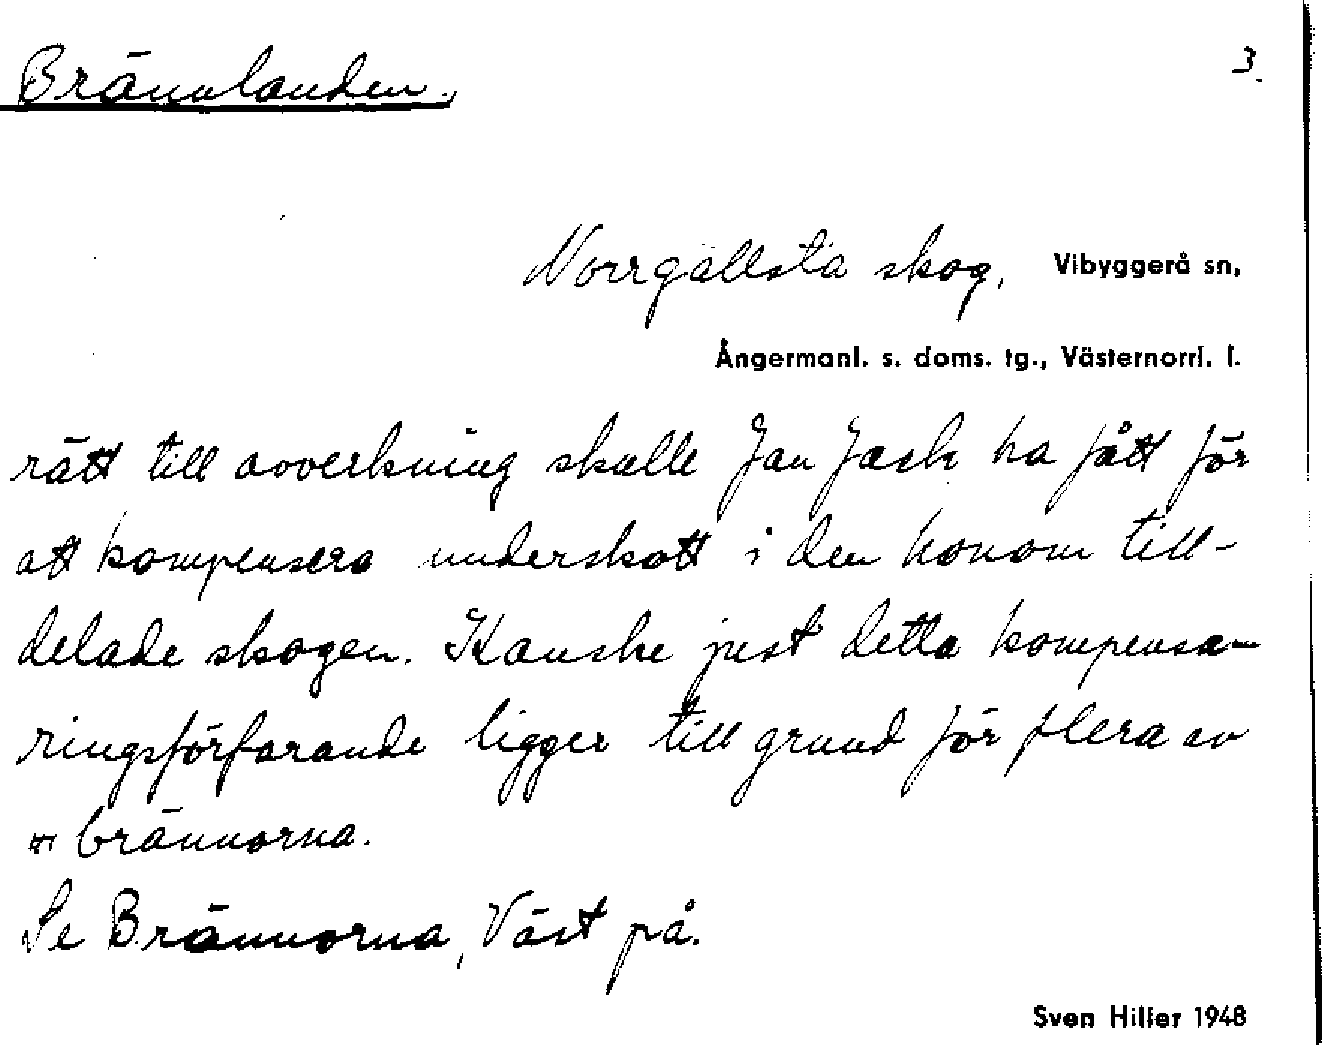 Brännlanden.
3.
Norrgällsta skog, Vibyggerå sn,
Ångermanl. s. doms. tg., Västernorrl. l.
rätt till avverkning skulle Jan Jask ha fått för
att kompensera underskott i den honom till-
delade skogen. Kanske just detta kompensa-
ringsförfarande ligger till grund för flera av
brännorna.
Se Brännorna, Väst på.
Sven Hiller 1948